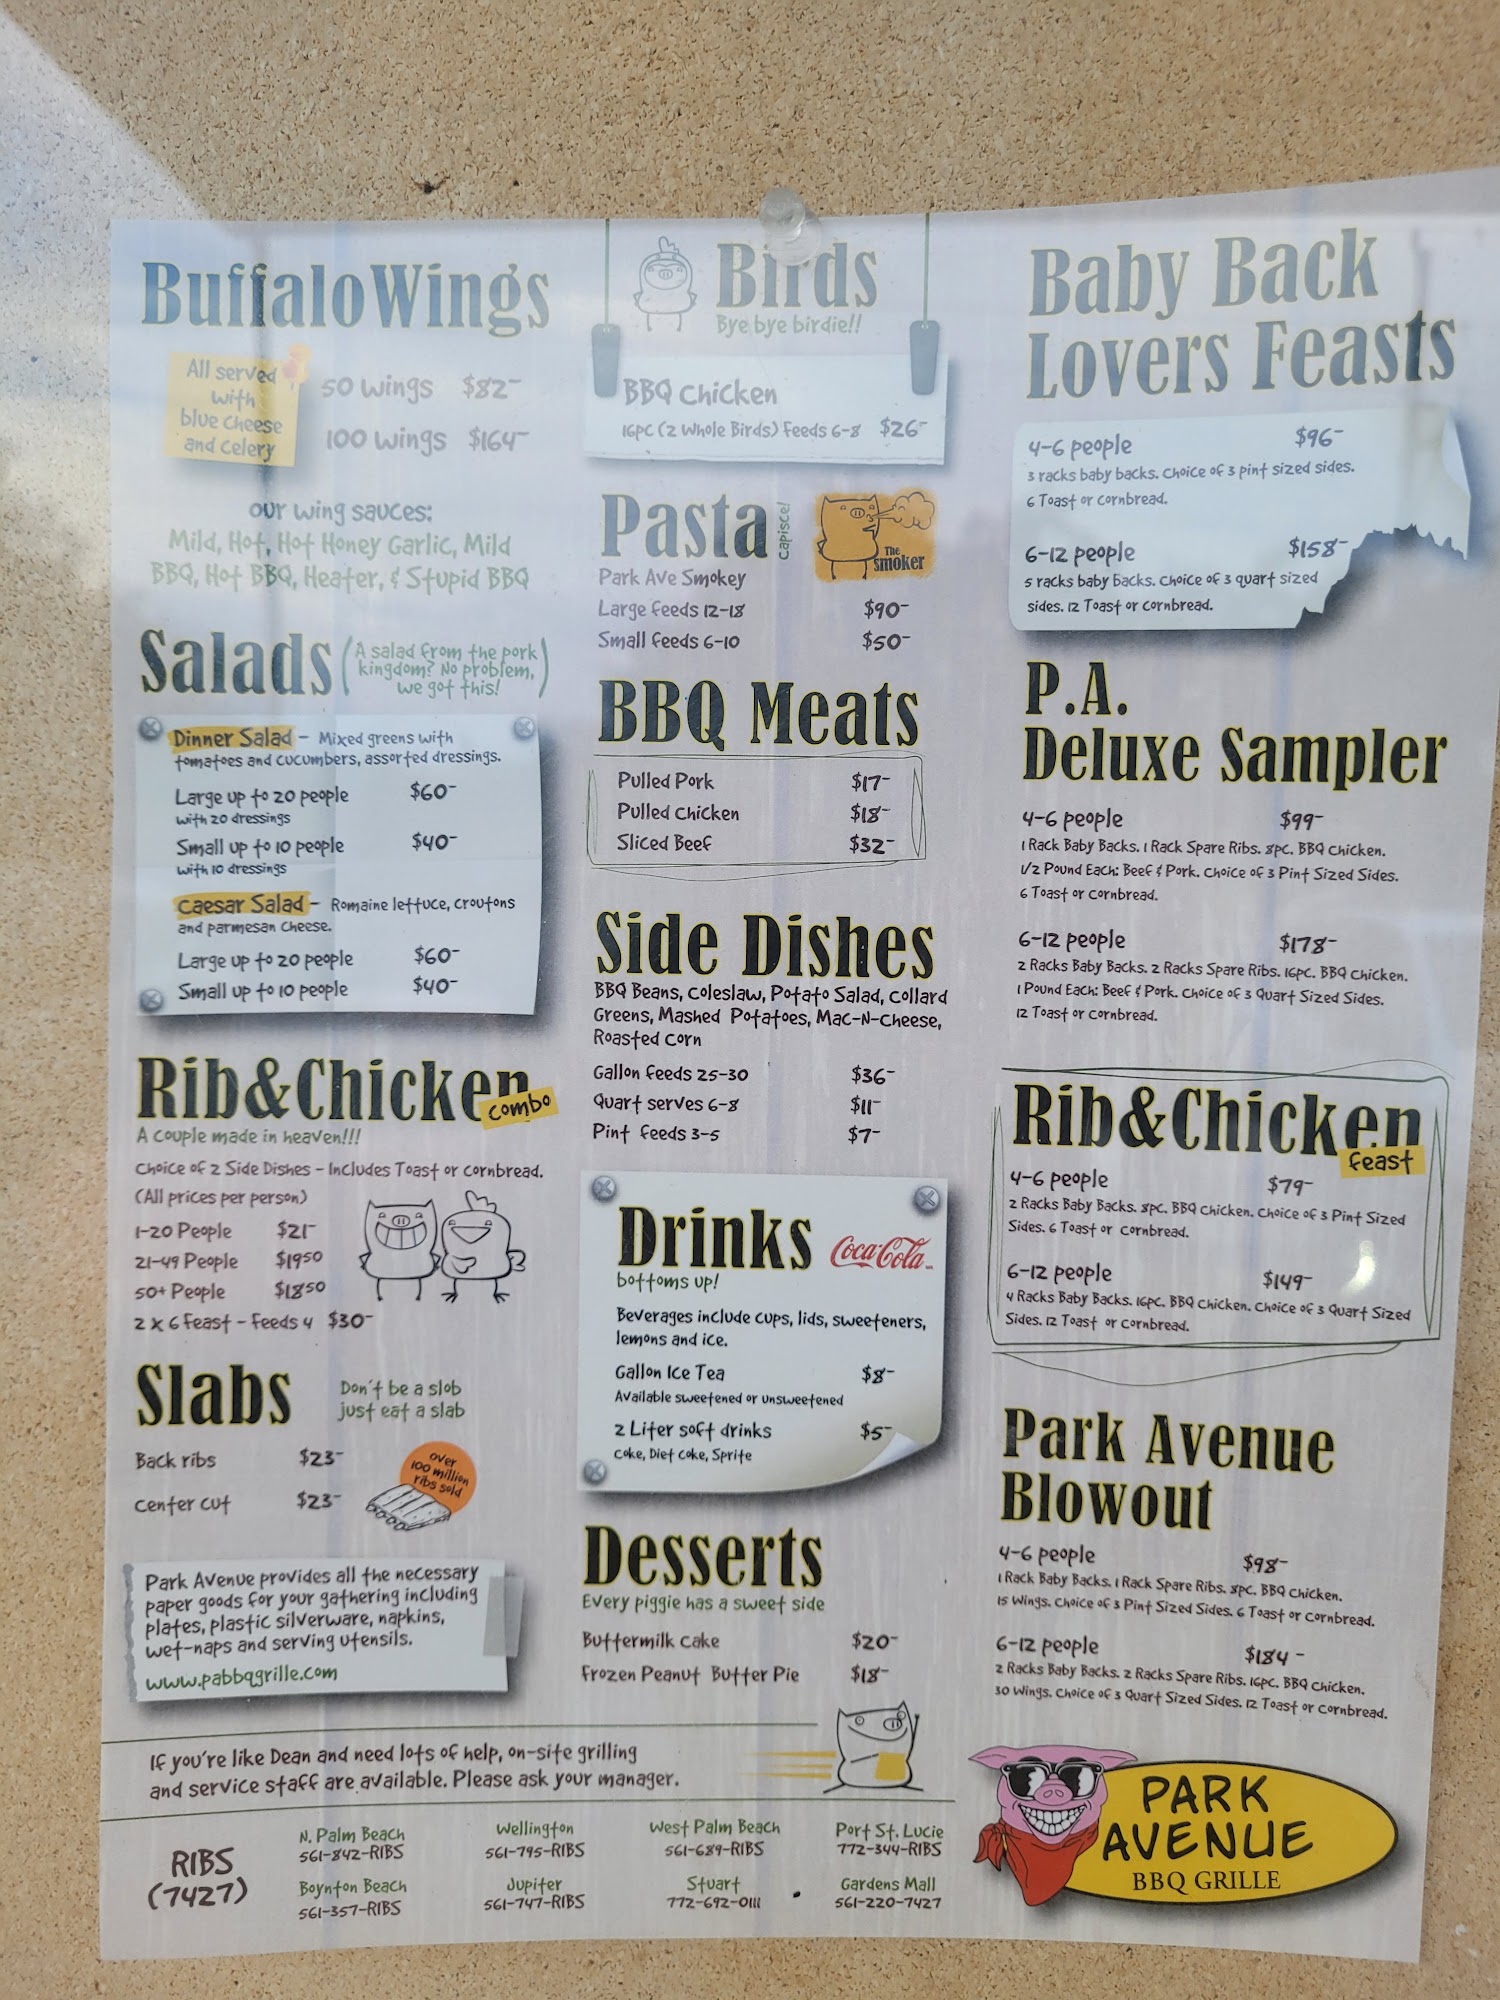 Buffalo Wings
All served
with
blue cheese
and celery
50 wings $82-
100 wings $164-
our wing sauces:
Mild, Hot, Hot Honey Garlic, Mild
BBQ, Hot BBQ, Heater, & Stupid BBQ
Salads
(A salad from the pork
kingdom? No problem,
we got this!)
Dinner Salad - Mixed greens with
tomatoes and cucumbers, assorted dressings.
Large up to 20 people $60-
with 20 dressings
Small up to 10 people $40-
with 10 dressings
Caesar Salad - Romaine lettuce, croutons
and parmesan cheese.
Large up to 20 people $60-
Small up to 10 people $40-
Rib&Chicken
combo
A couple made in heaven!!!
Choice of 2 Side Dishes - Includes Toast or cornbread.
(All prices per person)
1-20 People $21-
21-49 People $19.50
50+ People $18.50
2 x 6 Feast - Feeds 4 $30-
Slabs
Don't be a slob
just eat a slab
Back ribs $23-
Center cut $23-
over
100 million
ribs sold
Park Avenue provides all the necessary
paper goods for your gathering including
plates, plastic silverware, napkins,
wet-naps and serving utensils.
www.pabbqgrille.com
Birds
Bye bye birdie!!
BBQ Chicken
16pc (2 Whole Birds) Feeds 6-8 $26-
Pasta
capisce!
The
Smoker
Park Ave Smokey
Large feeds 12-18 $90-
Small feeds 6-10 $50-
BBQ Meats
Pulled Pork $17-
Pulled Chicken $18-
Sliced Beef $32-
Side Dishes
BBQ Beans, Coleslaw, Potato Salad, Collard
Greens, Mashed Potatoes, Mac-N-Cheese,
Roasted Corn
Gallon feeds 25-30 $36-
Quart serves 6-8 $11-
Pint feeds 3-5 $7-
Drinks
Coca-Cola
bottoms up!
Beverages include cups, lids, sweeteners,
lemons and ice.
Gallon Ice Tea $8-
Available sweetened or unsweetened
2 Liter soft drinks $5-
Coke, Diet Coke, Sprite
Desserts
Every piggie has a sweet side
Buttermilk Cake $20-
Frozen Peanut Butter Pie $18-
Baby Back
Lovers Feasts
4-6 people $96-
3 racks baby backs. Choice of 3 pint sized sides.
6 Toast or cornbread.
6-12 people $158-
5 racks baby backs. Choice of 3 quart sized
sides. 12 Toast or cornbread.
P.A.
Deluxe Sampler
4-6 people $99-
1 Rack Baby Backs. 1 Rack Spare Ribs. 8pc. BBQ Chicken.
1/2 Pound Each: Beef & Pork. Choice of 3 Pint Sized Sides.
6 Toast or cornbread.
6-12 people $178-
2 Racks Baby Backs. 2 Racks Spare Ribs. 16pc. BBQ Chicken.
1 Pound Each: Beef & Pork. Choice of 3 Quart Sized Sides.
12 Toast or cornbread.
Rib&Chicken
feast
4-6 people $79-
2 Racks Baby Backs. 8pc. BBQ Chicken. Choice of 3 Pint Sized
Sides. 6 Toast or cornbread.
6-12 people $149-
4 Racks Baby Backs. 16pc. BBQ Chicken. Choice of 3 Quart Sized
Sides. 12 Toast or cornbread.
Park Avenue
Blowout
4-6 people $98-
1 Rack Baby Backs. 1 Rack Spare Ribs. 8pc. BBQ Chicken.
15 Wings. Choice of 3 Pint Sized Sides. 6 Toast or cornbread.
6-12 people $184-
2 Racks Baby Backs. 2 Racks Spare Ribs. 16pc. BBQ Chicken.
30 Wings. Choice of 3 Quart Sized Sides. 12 Toast or cornbread.
If you're like Dean and need lots of help, on-site grilling
and service staff are available. Please ask your manager.
RIBS
(7427)
N. Palm Beach
561-842-RIBS
Wellington
561-795-RIBS
West Palm Beach
561-689-RIBS
Port St. Lucie
772-344-RIBS
Boynton Beach
561-357-RIBS
Jupiter
561-747-RIBS
Stuart
772-692-0111
Gardens Mall
561-220-7427
PARK
AVENUE
BBQ GRILLE